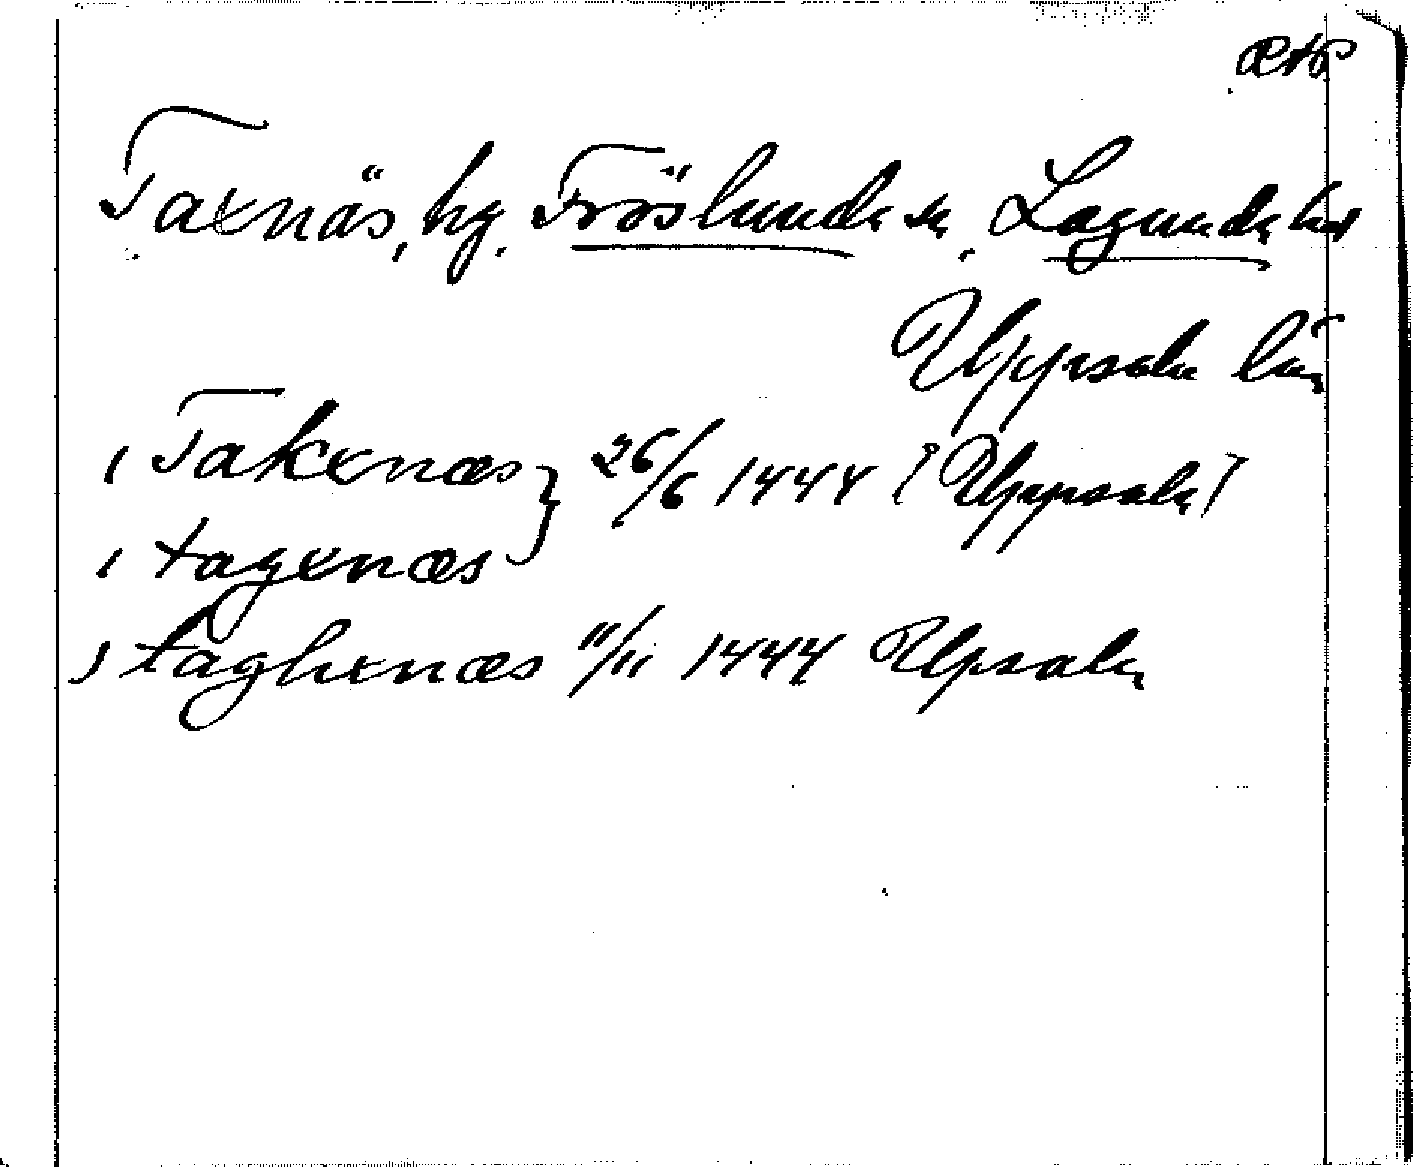 Taxnäs, by. Fröslunda sn, Lagunda hd
Uppsala län
i Takxnæs } 26/6 1444 [Uppsala]
i tagxnæs
i taghxnæs 11/11 1444 Upsala